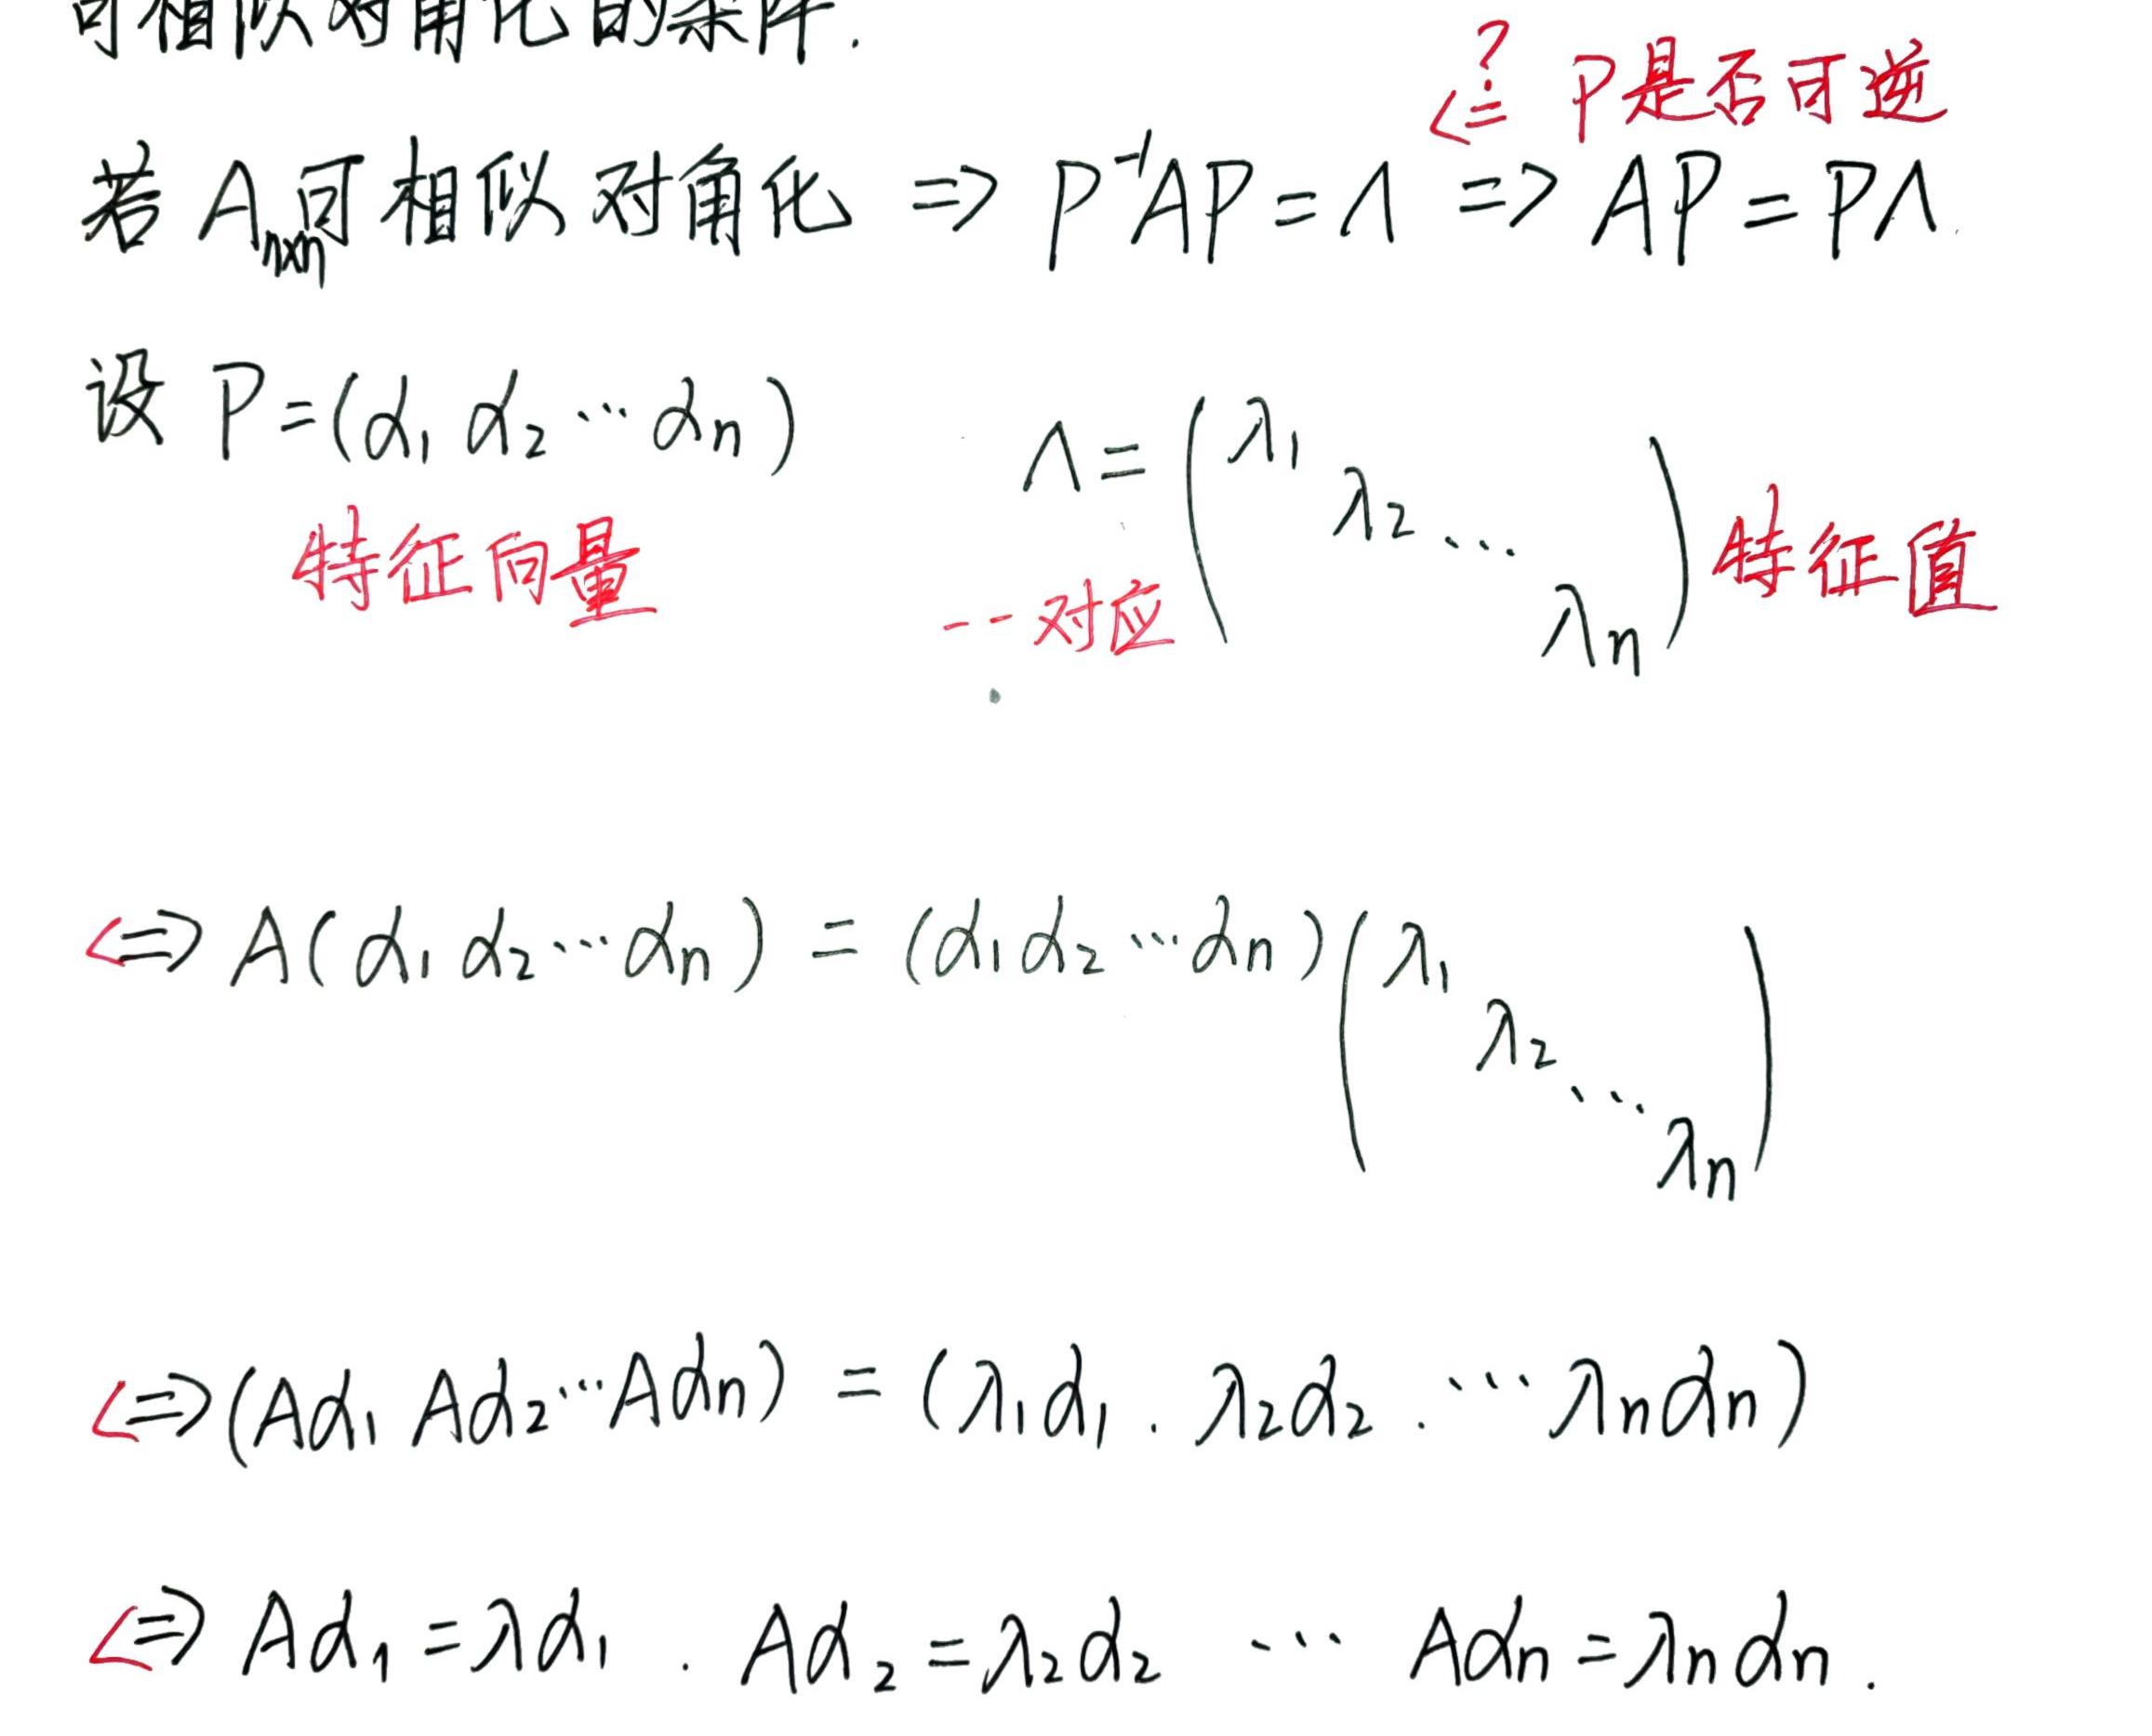 可相似对角化的条件.
<?= P是否可逆
若 Aₙₓₙ可相似对角化 => P⁻¹AP=Λ => AP=PΛ.
设 P=(α₁ α₂ ⋯ αn) Λ=(λ₁ λ₂ ⋯ λn) 特征值
特征向量 一一对应
<=> A(α₁ α₂ ⋯ αn) = (α₁ α₂ ⋯ αn)(λ₁ λ₂ ⋯ λn)
<=> (Aα₁ Aα₂ ⋯ Aαn) = (λ₁α₁ . λ₂α₂ . ⋯ λnαn)
<=> Aα₁=λα₁ . Aα₂=λ₂α₂ ⋯ Aαn=λnαn .